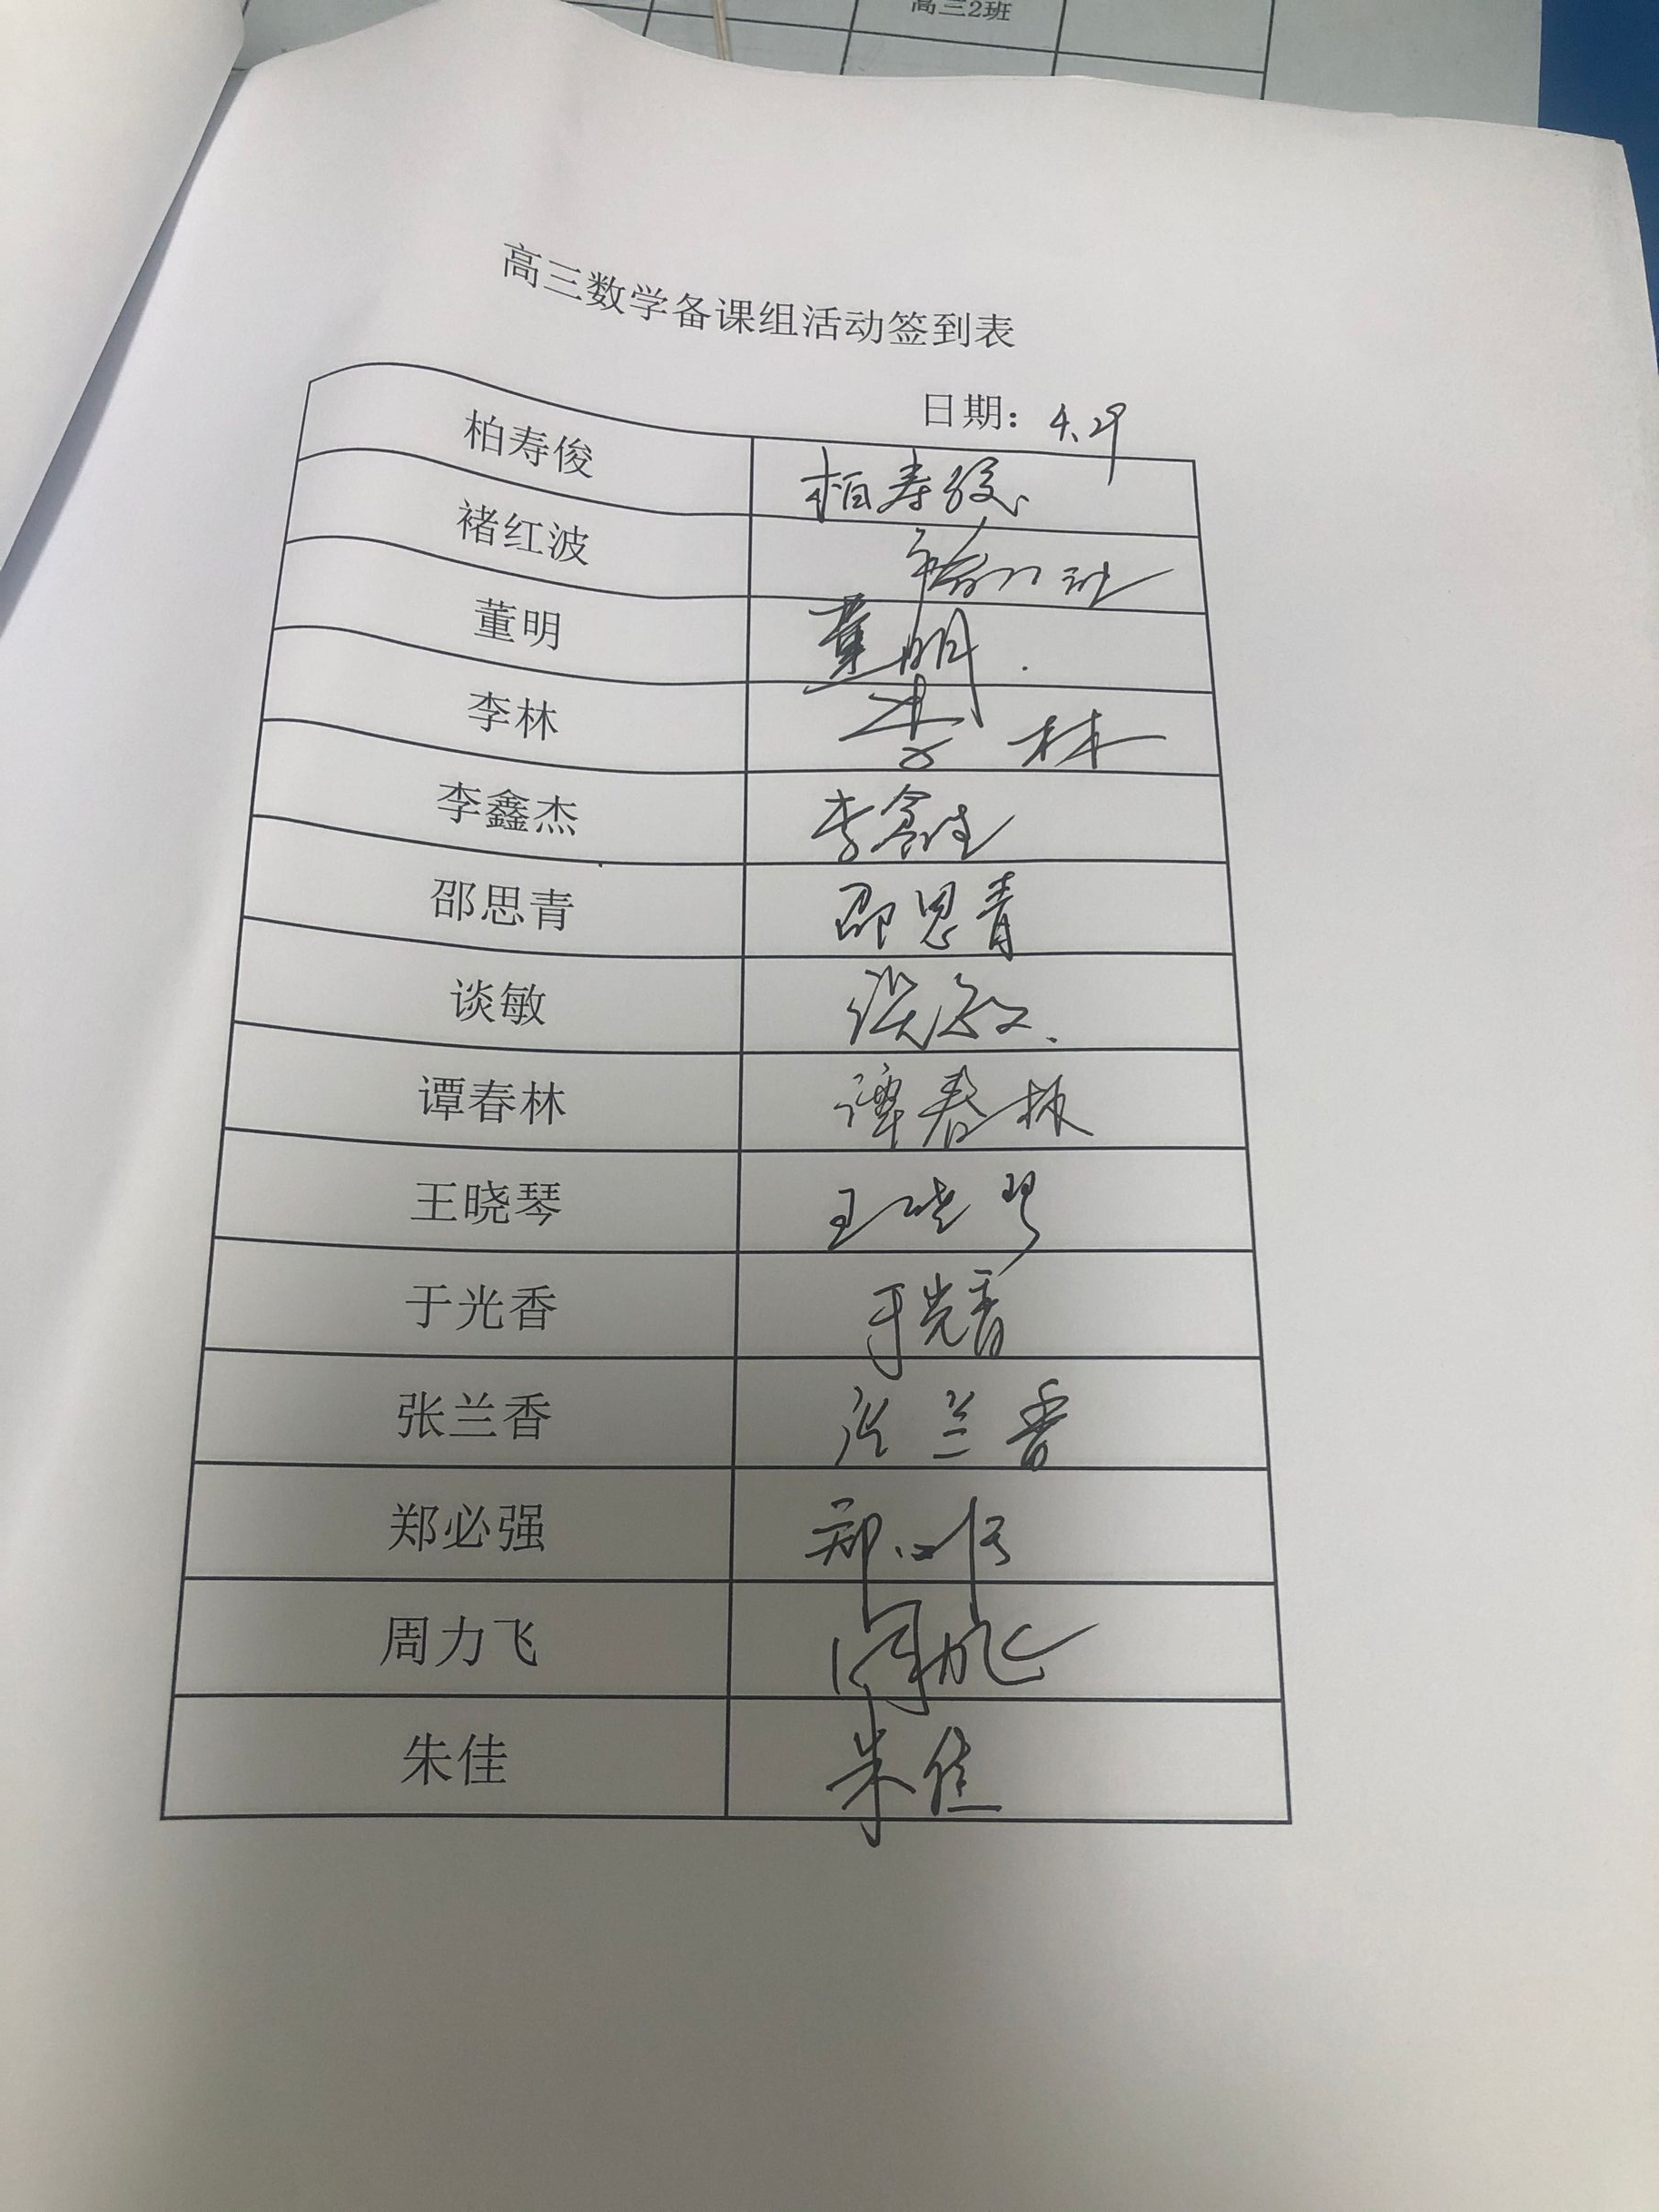 高三2班
高三数学备课组活动签到表
日期：4.29
柏寿俊 柏寿俊
褚红波 褚红波
董明 董明.
李林 李林
李鑫杰 李鑫杰
邵思青 邵思青
谈敏 谈敏.
谭春林 谭春林
王晓琴 王晓琴
于光香 于光香
张兰香 张兰香
郑必强 郑必强
周力飞 周力飞
朱佳 朱佳